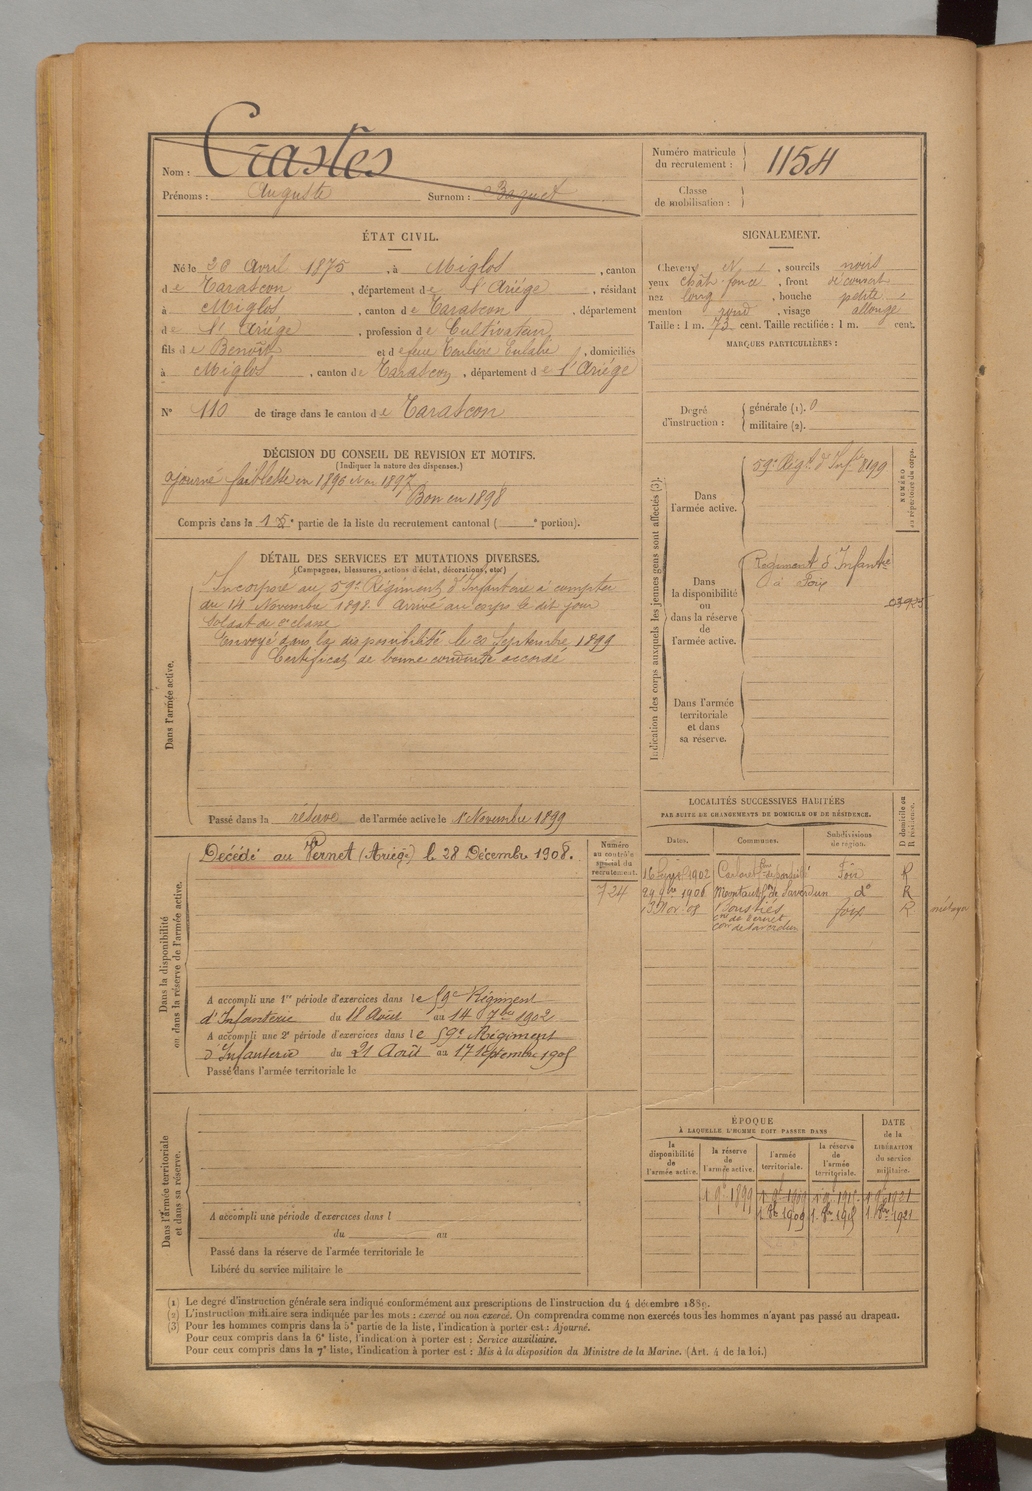 Nom : Crastes
Prénoms : Auguste Surnom : Baquet
Numéro matricule du recrutement : 1154
Classe de mobilisation :
ÉTAT CIVIL.
Né le 20 Avril 1875, à Miglos, canton
de Tarascon, département de l'Ariége, résidant
à Miglos, canton de Tarascon, département
de l'Ariége, profession de Cultivateur
fils de Benoît et de feue Eulalie, domiciliés
à Miglos, canton de Tarascon, département de l'Ariége
N° 110 de tirage dans le canton de Tarascon
SIGNALEMENT.
Cheveux N, sourcils noirs
yeux chât. foncé, front découvert
nez long, bouche petite
menton rond, visage allongé
Taille : 1 m. 73 cent. Taille rectifiée : 1 m. cent.
MARQUES PARTICULIÈRES :
Degré d'instruction : générale (1). 0
militaire (2).
DÉCISION DU CONSEIL DE REVISION ET MOTIFS.
(Indiquez la nature des dispenses.)
ajourné faiblesse en 1896 1897
Bon en 1898
Compris dans la partie de la liste du recrutement cantonal ( e portion).
DÉTAIL DES SERVICES ET MUTATIONS DIVERSES.
(Campagnes, blessures, actions d'éclat, décorations, etc.)
Dans l'armée active.
Incorporé au 59e Régiment d'Infanterie à compter
du 14 Novembre 1898. Arrivé au corps le dit jour
soldat de 2e classe
Envoyé dans la disponibilité le 20 Septembre 1899
Certificat de bonne conduite accordé
Passé dans la réserve de l'armée active le 1 Novembre 1899
Indication des corps auxquels les jeunes gens sont affectés (3).
NUMÉRO au répertoire du corps.
Dans l'armée active.
59e Régt d'Infie 8199
Dans la disponibilité ou dans la réserve de l'armée active.
Régiment d'Infantie
à Foix
03925
Dans l'armée territoriale et dans sa réserve.
Dans la disponibilité ou dans la réserve de l'armée active.
Décédé au Vernet (Ariège) le 28 Décembre 1908.
Numéro au contrôle spécial du recrutement.
724
A accompli une 1re période d'exercices dans le 59e Régiment
d'Infanterie du 18 Août au 14 7bre 1902
A accompli une 2e période d'exercices dans le 59e Régiment
d'Infanterie du 21 Août au 17 Septembre 1905
Passé dans l'armée territoriale le
LOCALITÉS SUCCESSIVES HABITÉES
PAR SUITE DE CHANGEMENTS DE DOMICILE OU DE RÉSIDENCE.
Dates. Communes. Subdivisions de région. D domicile ou R résidence.
16 1902 Foix R
29 9bre 1906 Montaut con de Saverdun do R
13 Nov. 08 Bousties cne de Vernet con de Saverdun foix R métayer
Dans l'armée territoriale et dans sa réserve.
A accompli une période d'exercices dans l
du au
Passé dans la réserve de l'armée territoriale le
Libéré du service militaire le
ÉPOQUE
À LAQUELLE L'HOMME DOIT PASSER DANS
DATE de la LIBÉRATION du service militaire.
la disponibilité de l'armée active. la réserve de l'armée active. l'armée territoriale. la réserve de l'armée territoriale.
1 9bre 1899 1 9bre 1909 1 9bre 1915 1 9bre 1921
1 8bre 1909 1 8bre 1915 1 8bre 1921
(1) Le degré d'instruction générale sera indiqué conformément aux prescriptions de l'instruction du 4 décembre 1889.
(2) L'instruction militaire sera indiquée par les mots : exercé ou non exercé. On comprendra comme non exercés tous les hommes n'ayant pas passé au drapeau.
(3) Pour les hommes compris dans la 5e partie de la liste, l'indication à porter est : Ajourné.
Pour ceux compris dans la 6e liste, l'indication à porter est : Service auxiliaire.
Pour ceux compris dans la 7e liste, l'indication à porter est : Mis à la disposition du Ministre de la Marine. (Art. 4 de la loi.)